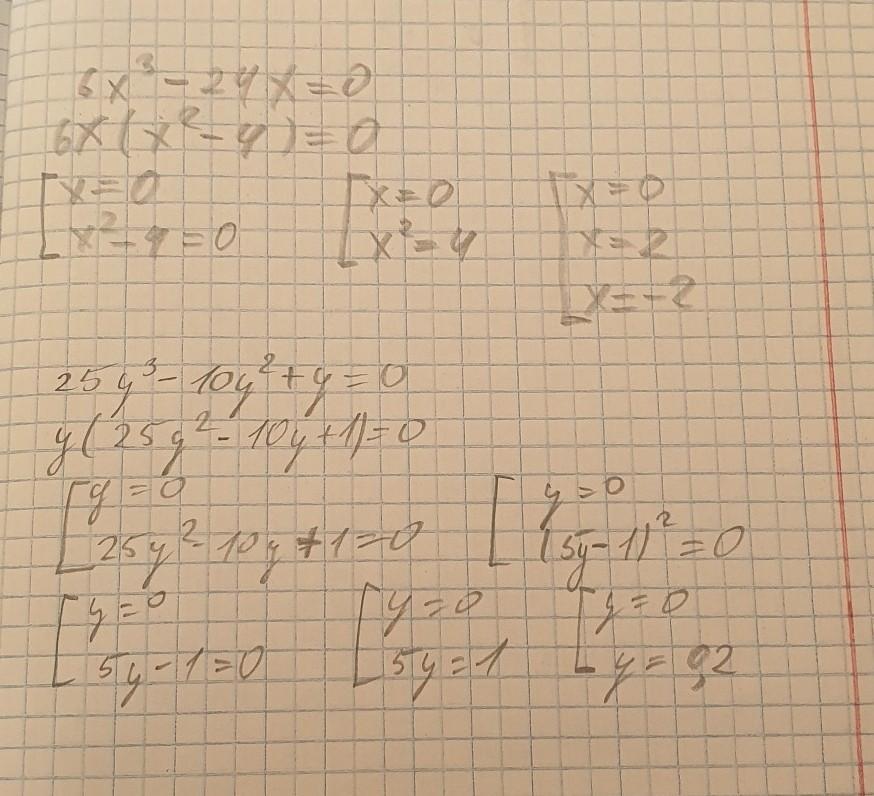 6x³ - 24x = 0
6x(x² - 4) = 0
[x = 0 [x = 0 [x = 0
x² - 4 = 0 x² = 4 x = 2
x = -2
25y³ - 10y² + y = 0
y(25y² - 10y + 1) = 0
[y = 0 [y = 0
25y² - 10y + 1 = 0 (5y - 1)² = 0
[y = 0 [y = 0 [y = 0
5y - 1 = 0 5y = 1 y = 0,2